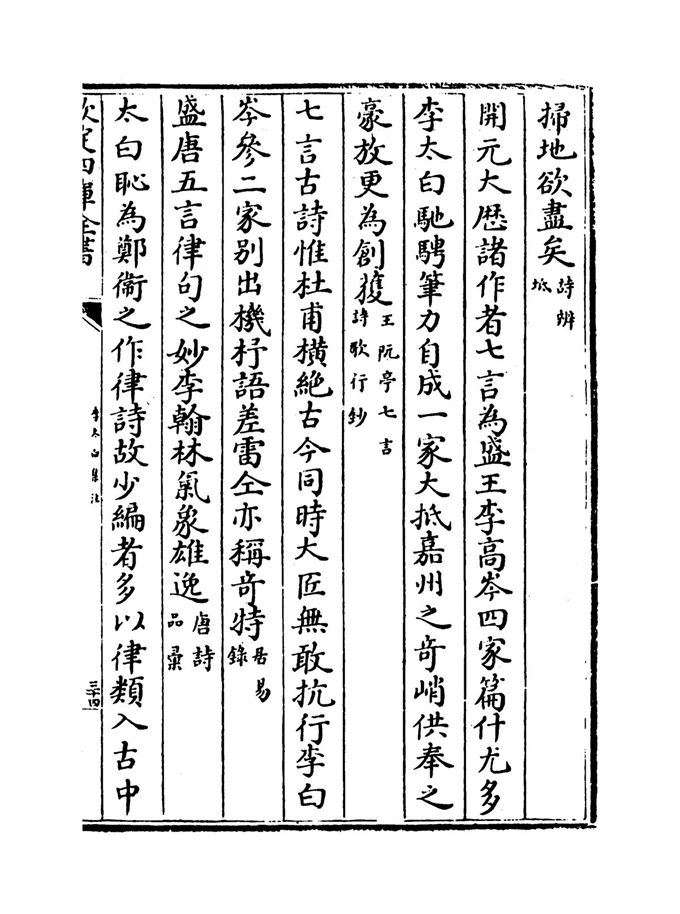 掃地欲盡矣詩辨坻
開元大歴諸作者七言為盛王李髙岑四家篇什尤多
李太白馳騁筆力自成一家大抵嘉州之竒峭供奉之
豪放更為創獲王阮亭七言詩歌行鈔
七言古詩惟杜甫橫絶古今同時大匠無敢抗行李白
岑參二家别出機杼語差雷仝亦稱竒特居易錄
盛唐五言律句之妙李翰林氣象雄逸唐詩品彚
太白恥為鄭衛之作律詩故少編者多以律類入古中
欽定四庫全書
李太白集注
三十四